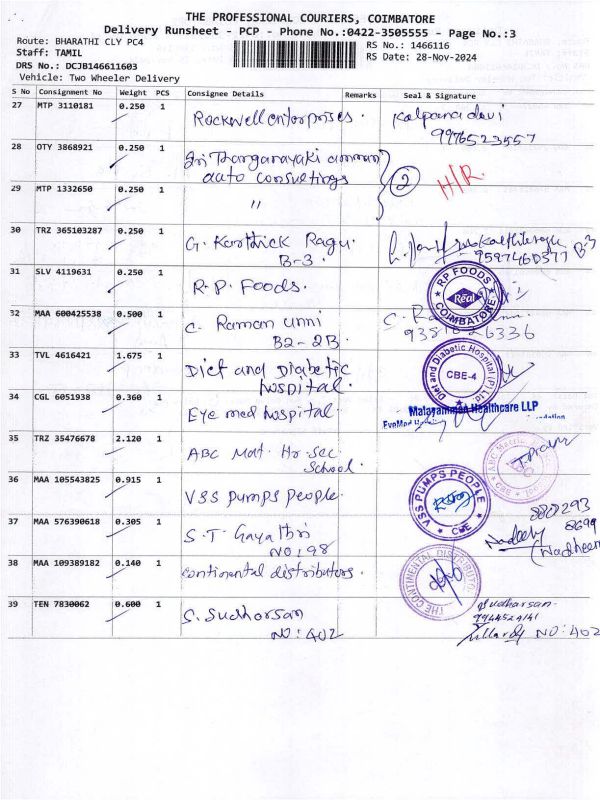 THE PROFESSIONAL COURIERS, COIMBATORE
Delivery Runsheet - PCP - Phone No.:0422-3505555 - Page No.:3
Route: BHARATHI CLY PC4
RS No.: 1466116
Staff: TAMIL
RS Date: 28-Nov-2024
DRS No.: DCJB146611603
Vehicle: Two Wheeler Delivery
S No Consignment No Weight PCS Consignee Details Remarks Seal & Signature
27 MTP 3110181 0.250 1 Rockwell enterprises. Kalpana devi
9976523557
28 OTY 3868921 0.250 1 Sri Thanganayaki amman
auto consultings 2 H/R
29 MTP 1332650 0.250 1 "
30 TRZ 365103287 0.250 1 G. Karthick Ragu.
B-3. 9597460577 B-3
31 SLV 4119631 0.250 1 R.P. Foods. RP FOODS Real COIMBATORE
32 MAA 600425538 0.500 1 C. Raman unni
B2-2B
33 TVL 4616421 1.675 1 Diet and Diabetic
hospital. Diet and Diabetic Hospital (P) Ltd CBE-4
34 CGL 6051938 0.360 1 Eye med hospital. Malayamman Healthcare LLP
35 TRZ 35476678 2.120 1 ABC Mat. Hr. Sec
School.
36 MAA 105543825 0.915 1 VSS Pumps people. VSS PUMPS PEOPLE CBE
37 MAA 576390618 0.305 1 S.T Gayathri
NO: 98 8699
38 MAA 109389182 0.140 1 Continental distributors. THE CONTINENTAL DISTRIBUTO
39 TEN 7830062 0.600 1 S. Sudharsan
NO: 402 Sudharsan.
NO: 402